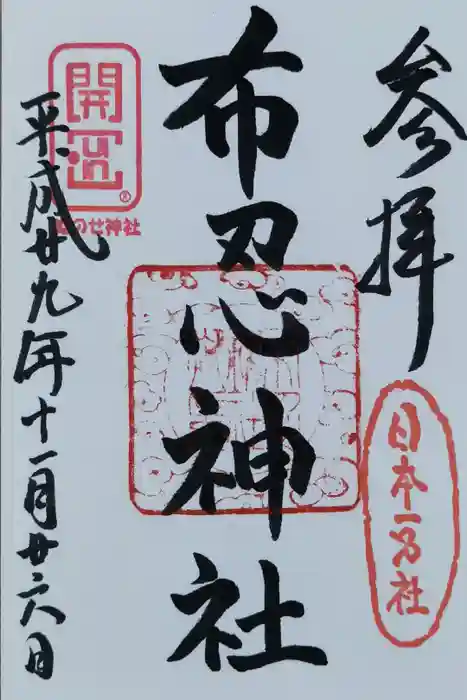 参拝
日本一名社
布忍神社
開運
ぬのせ神社
平成廿九年十一月廿六日